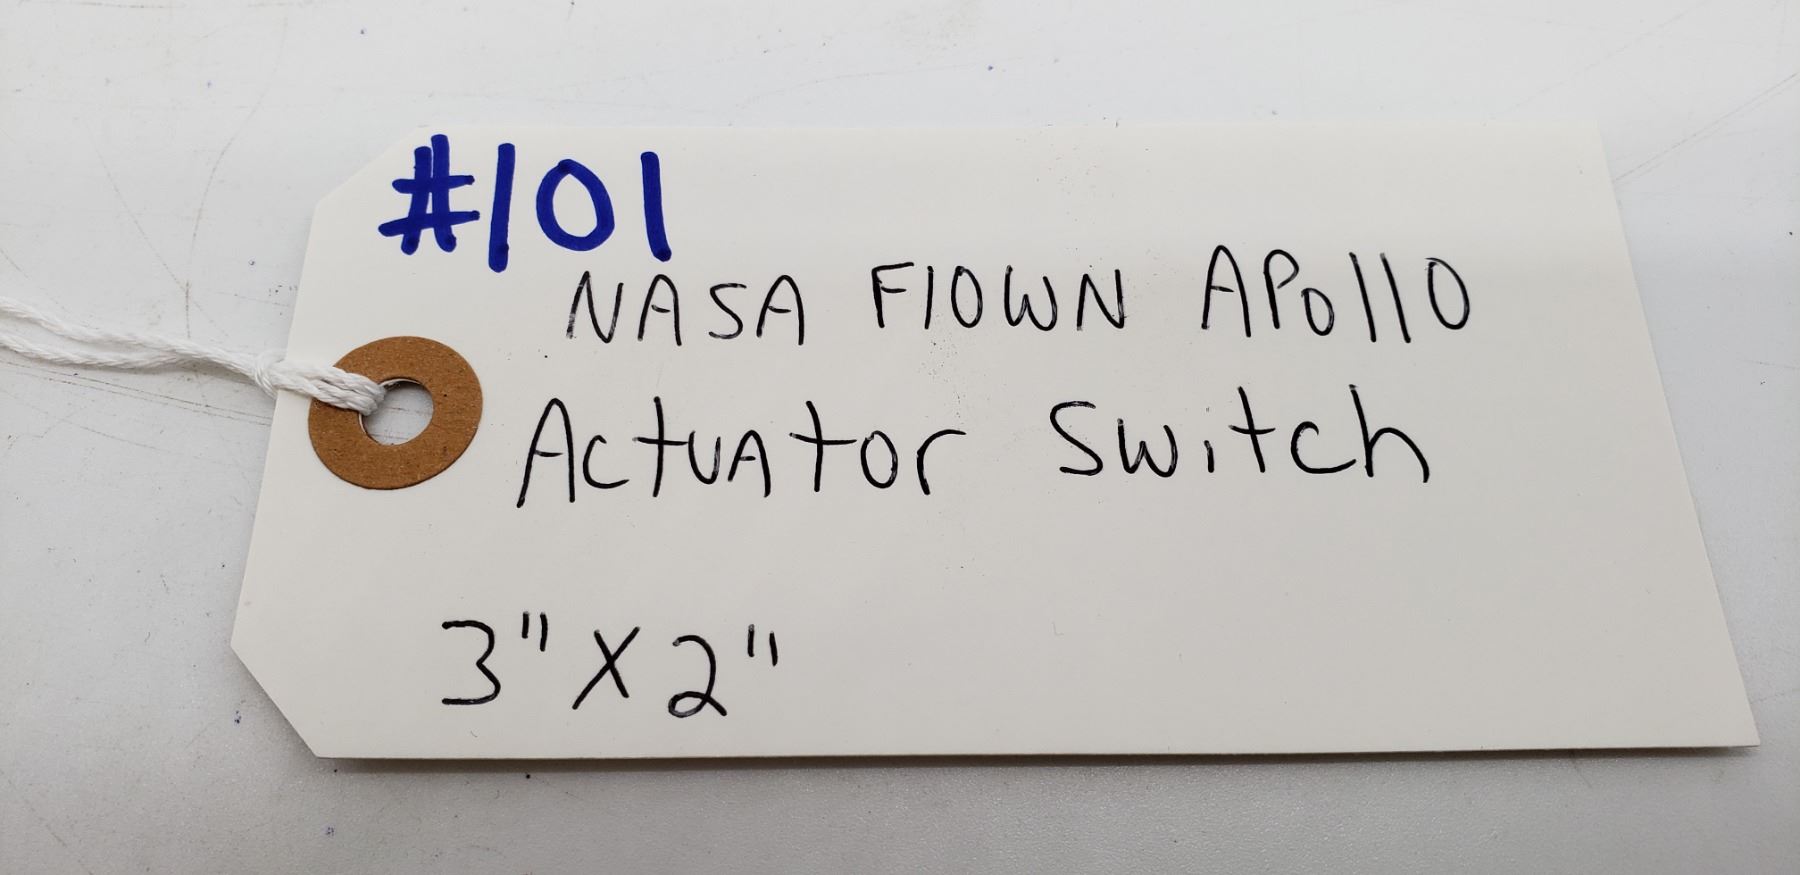 #101
NASA FlOWN APollO
ActuAtor Switch
3" X 2"